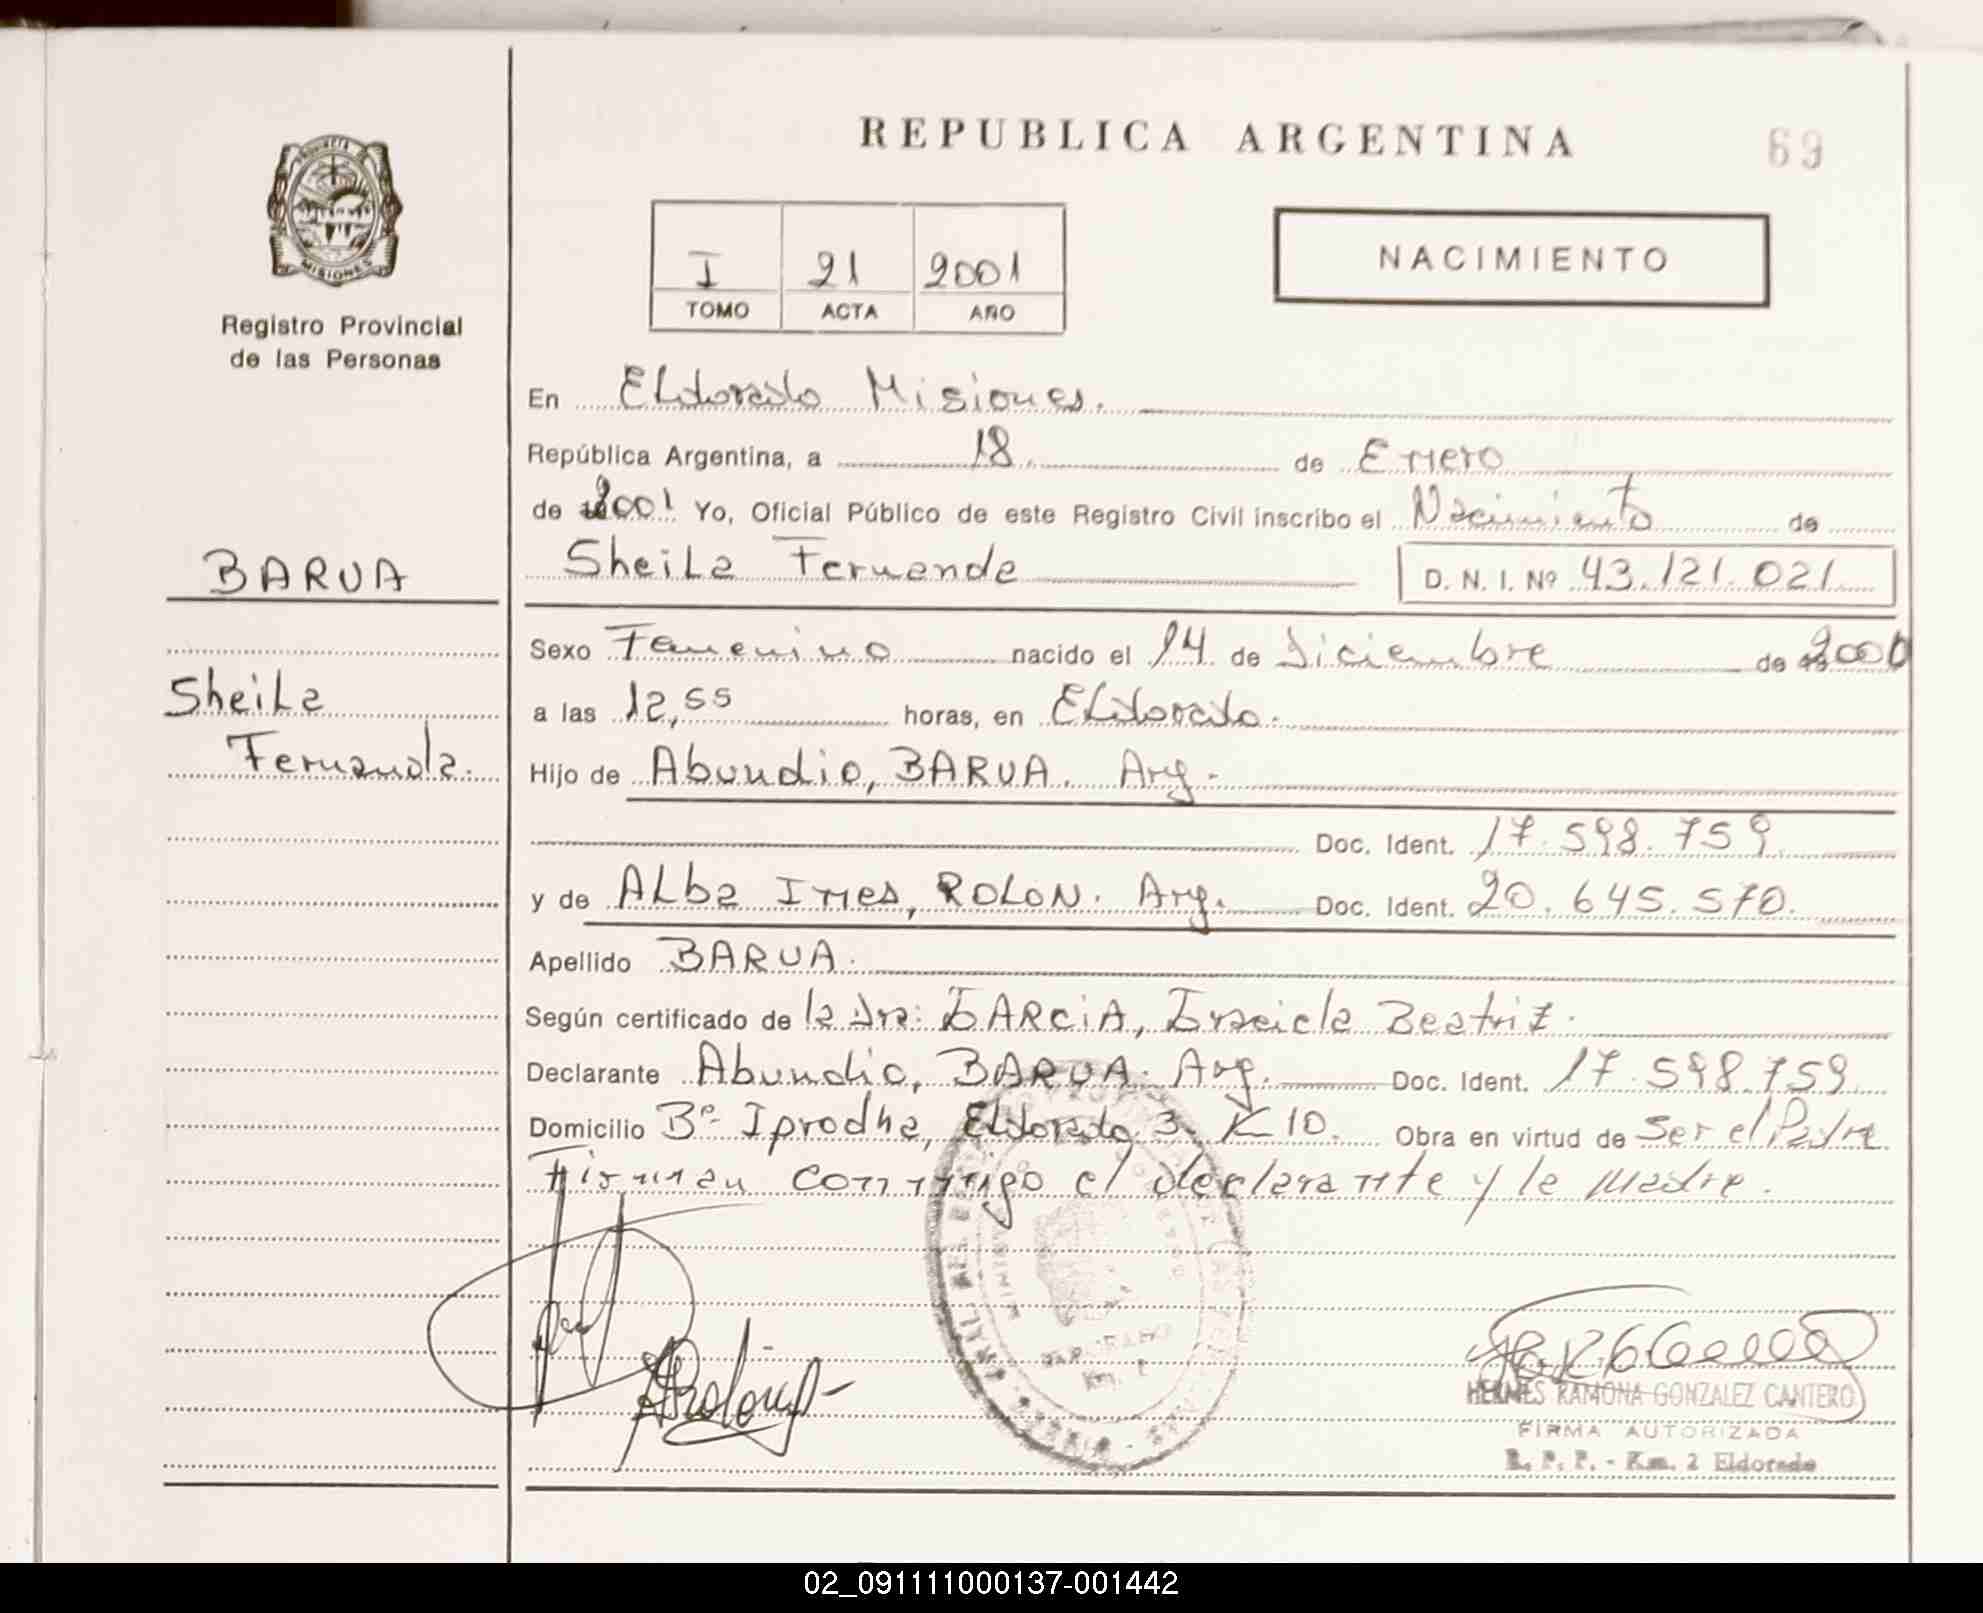 REPUBLICA ARGENTINA
69
PROVINCIA DE
MISIONES
Registro Provincial
de las Personas
I 21 2001
TOMO ACTA AÑO
NACIMIENTO
En Eldorado Misiones.
República Argentina, a 18 de Enero
de 2001 Yo, Oficial Público de este Registro Civil inscribo el Nacimiento de
BARUA
Sheila Fernanda D. N. I. Nº 43.121.021
Sexo Femenino nacido el 14 de Diciembre de 2000
Sheila
a las 12,55 horas, en Eldorado.
Fernanda.
Hijo de Abundio, BARUA. Arg.
Doc. Ident. 17.598.759
y de Alba Ines, ROLON. Arg. Doc. Ident. 20.645.570.
Apellido BARUA.
Según certificado de la Dra: GARCIA, Graciela Beatriz.
Declarante Abundio, BARUA. Arg. Doc. Ident. 17.598.759
Domicilio Bº Iprodha, Eldorado 3. K 10. Obra en virtud de Ser el Padre
Firman conmigo el declarante y la Madre.
HERMES RAMONA GONZALEZ CANTERO
FIRMA AUTORIZADA
R. P. P. - Km. 2 Eldorado
02_091111000137-001442